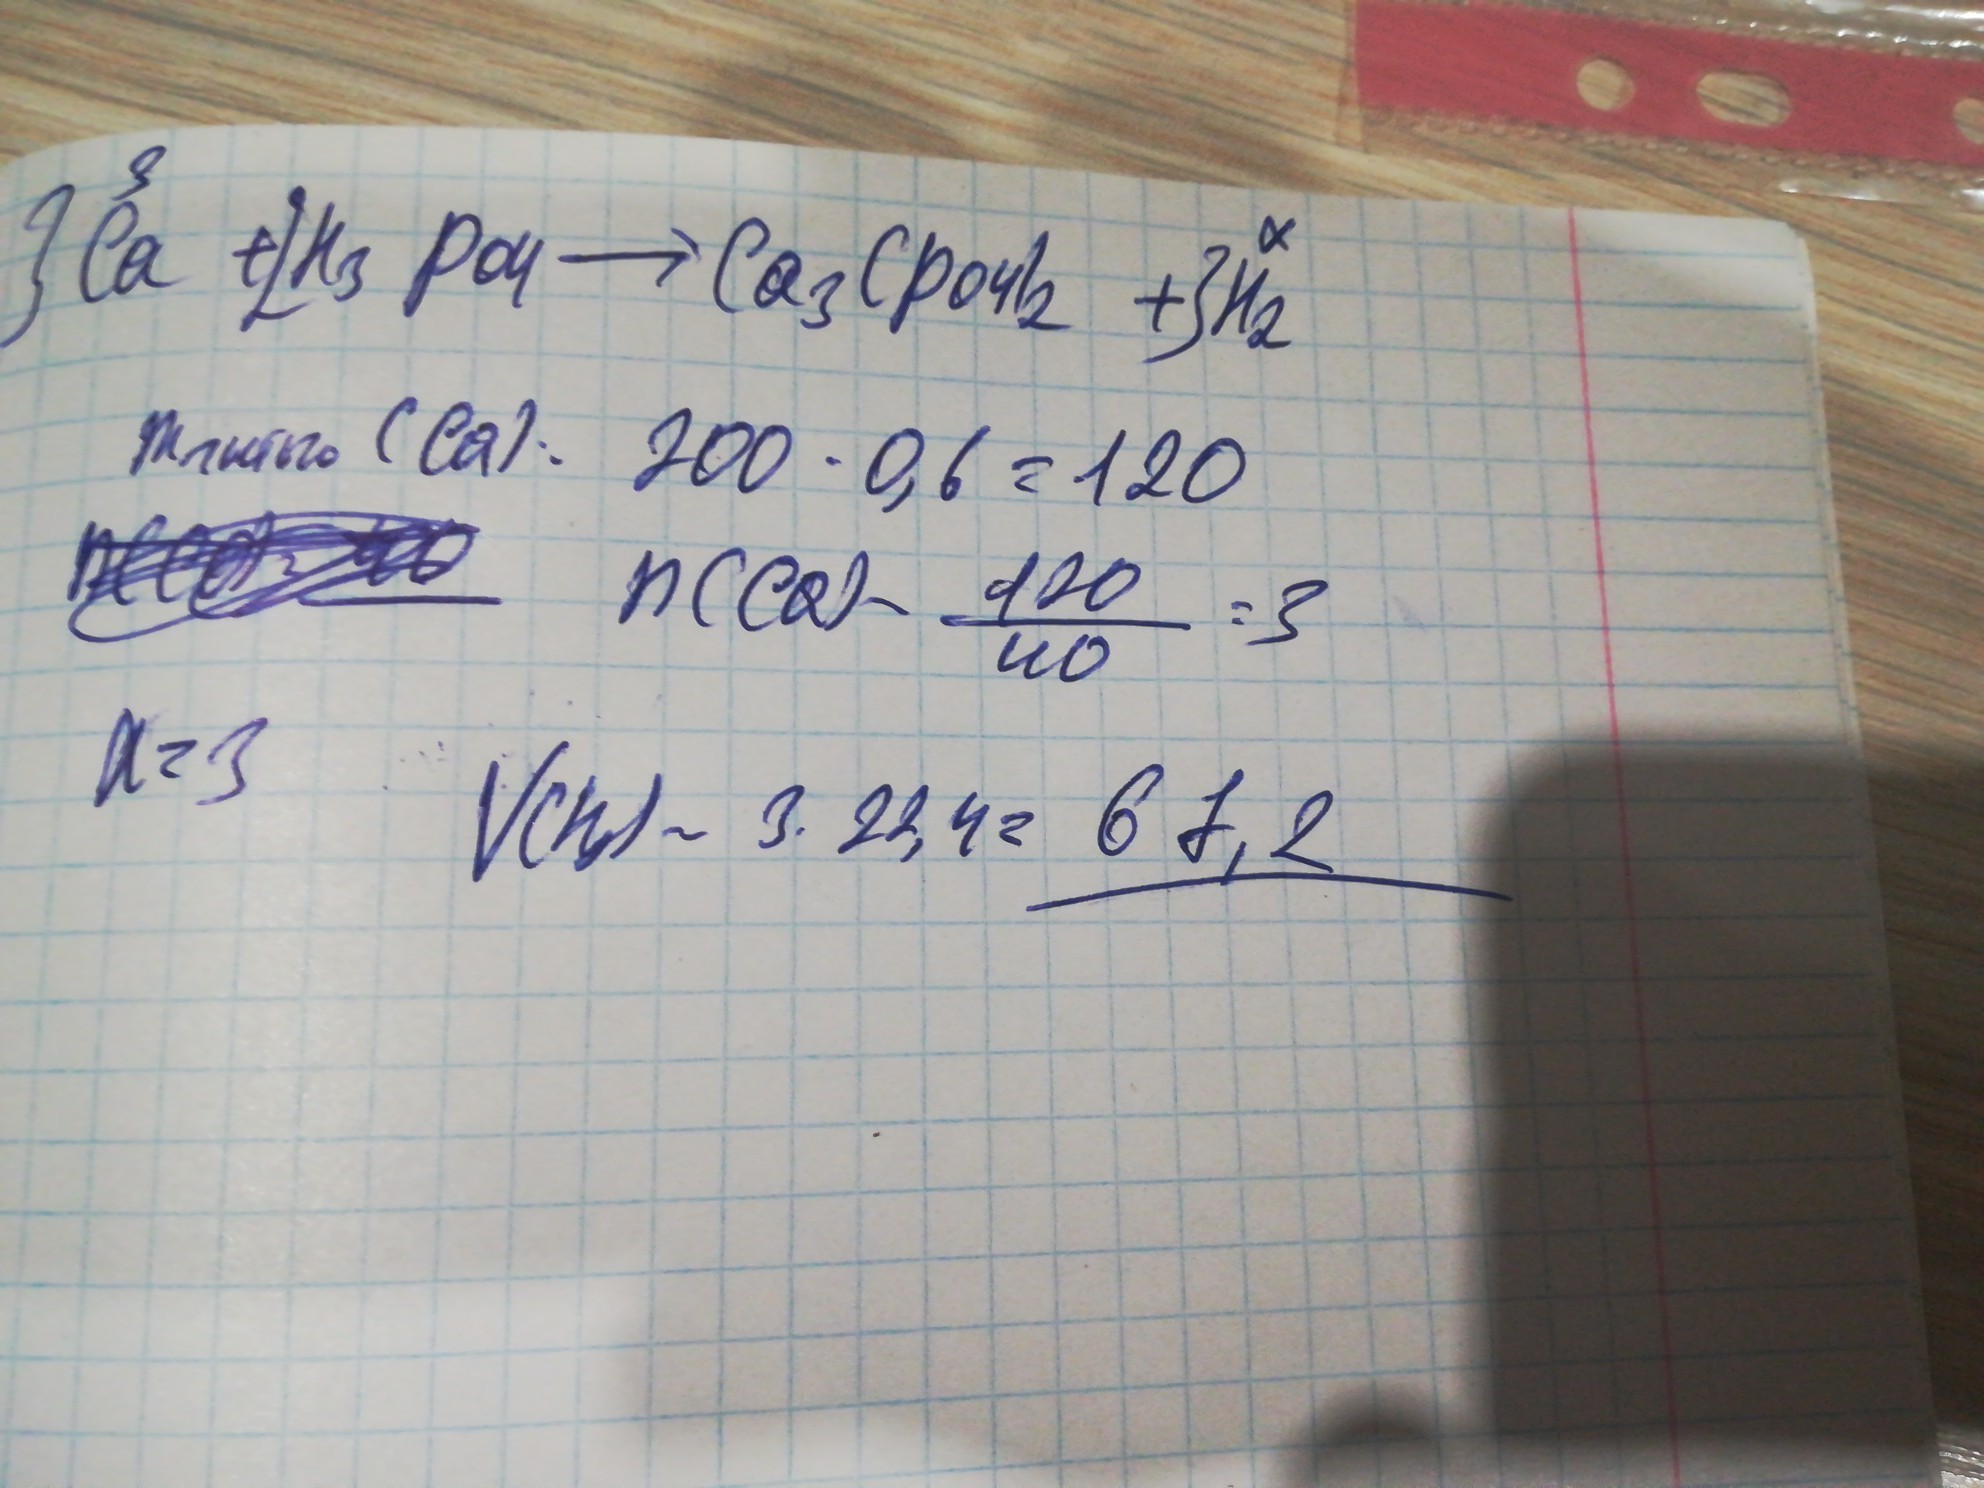 3
x
3Ca + 2H3PO4 → Ca3(PO4)2 + 3H2
m чистого (Ca) = 200 · 0,6 = 120
n(Ca) = 120/40 = 3
x = 3 V(H2) = 3 · 22,4 = 67,2